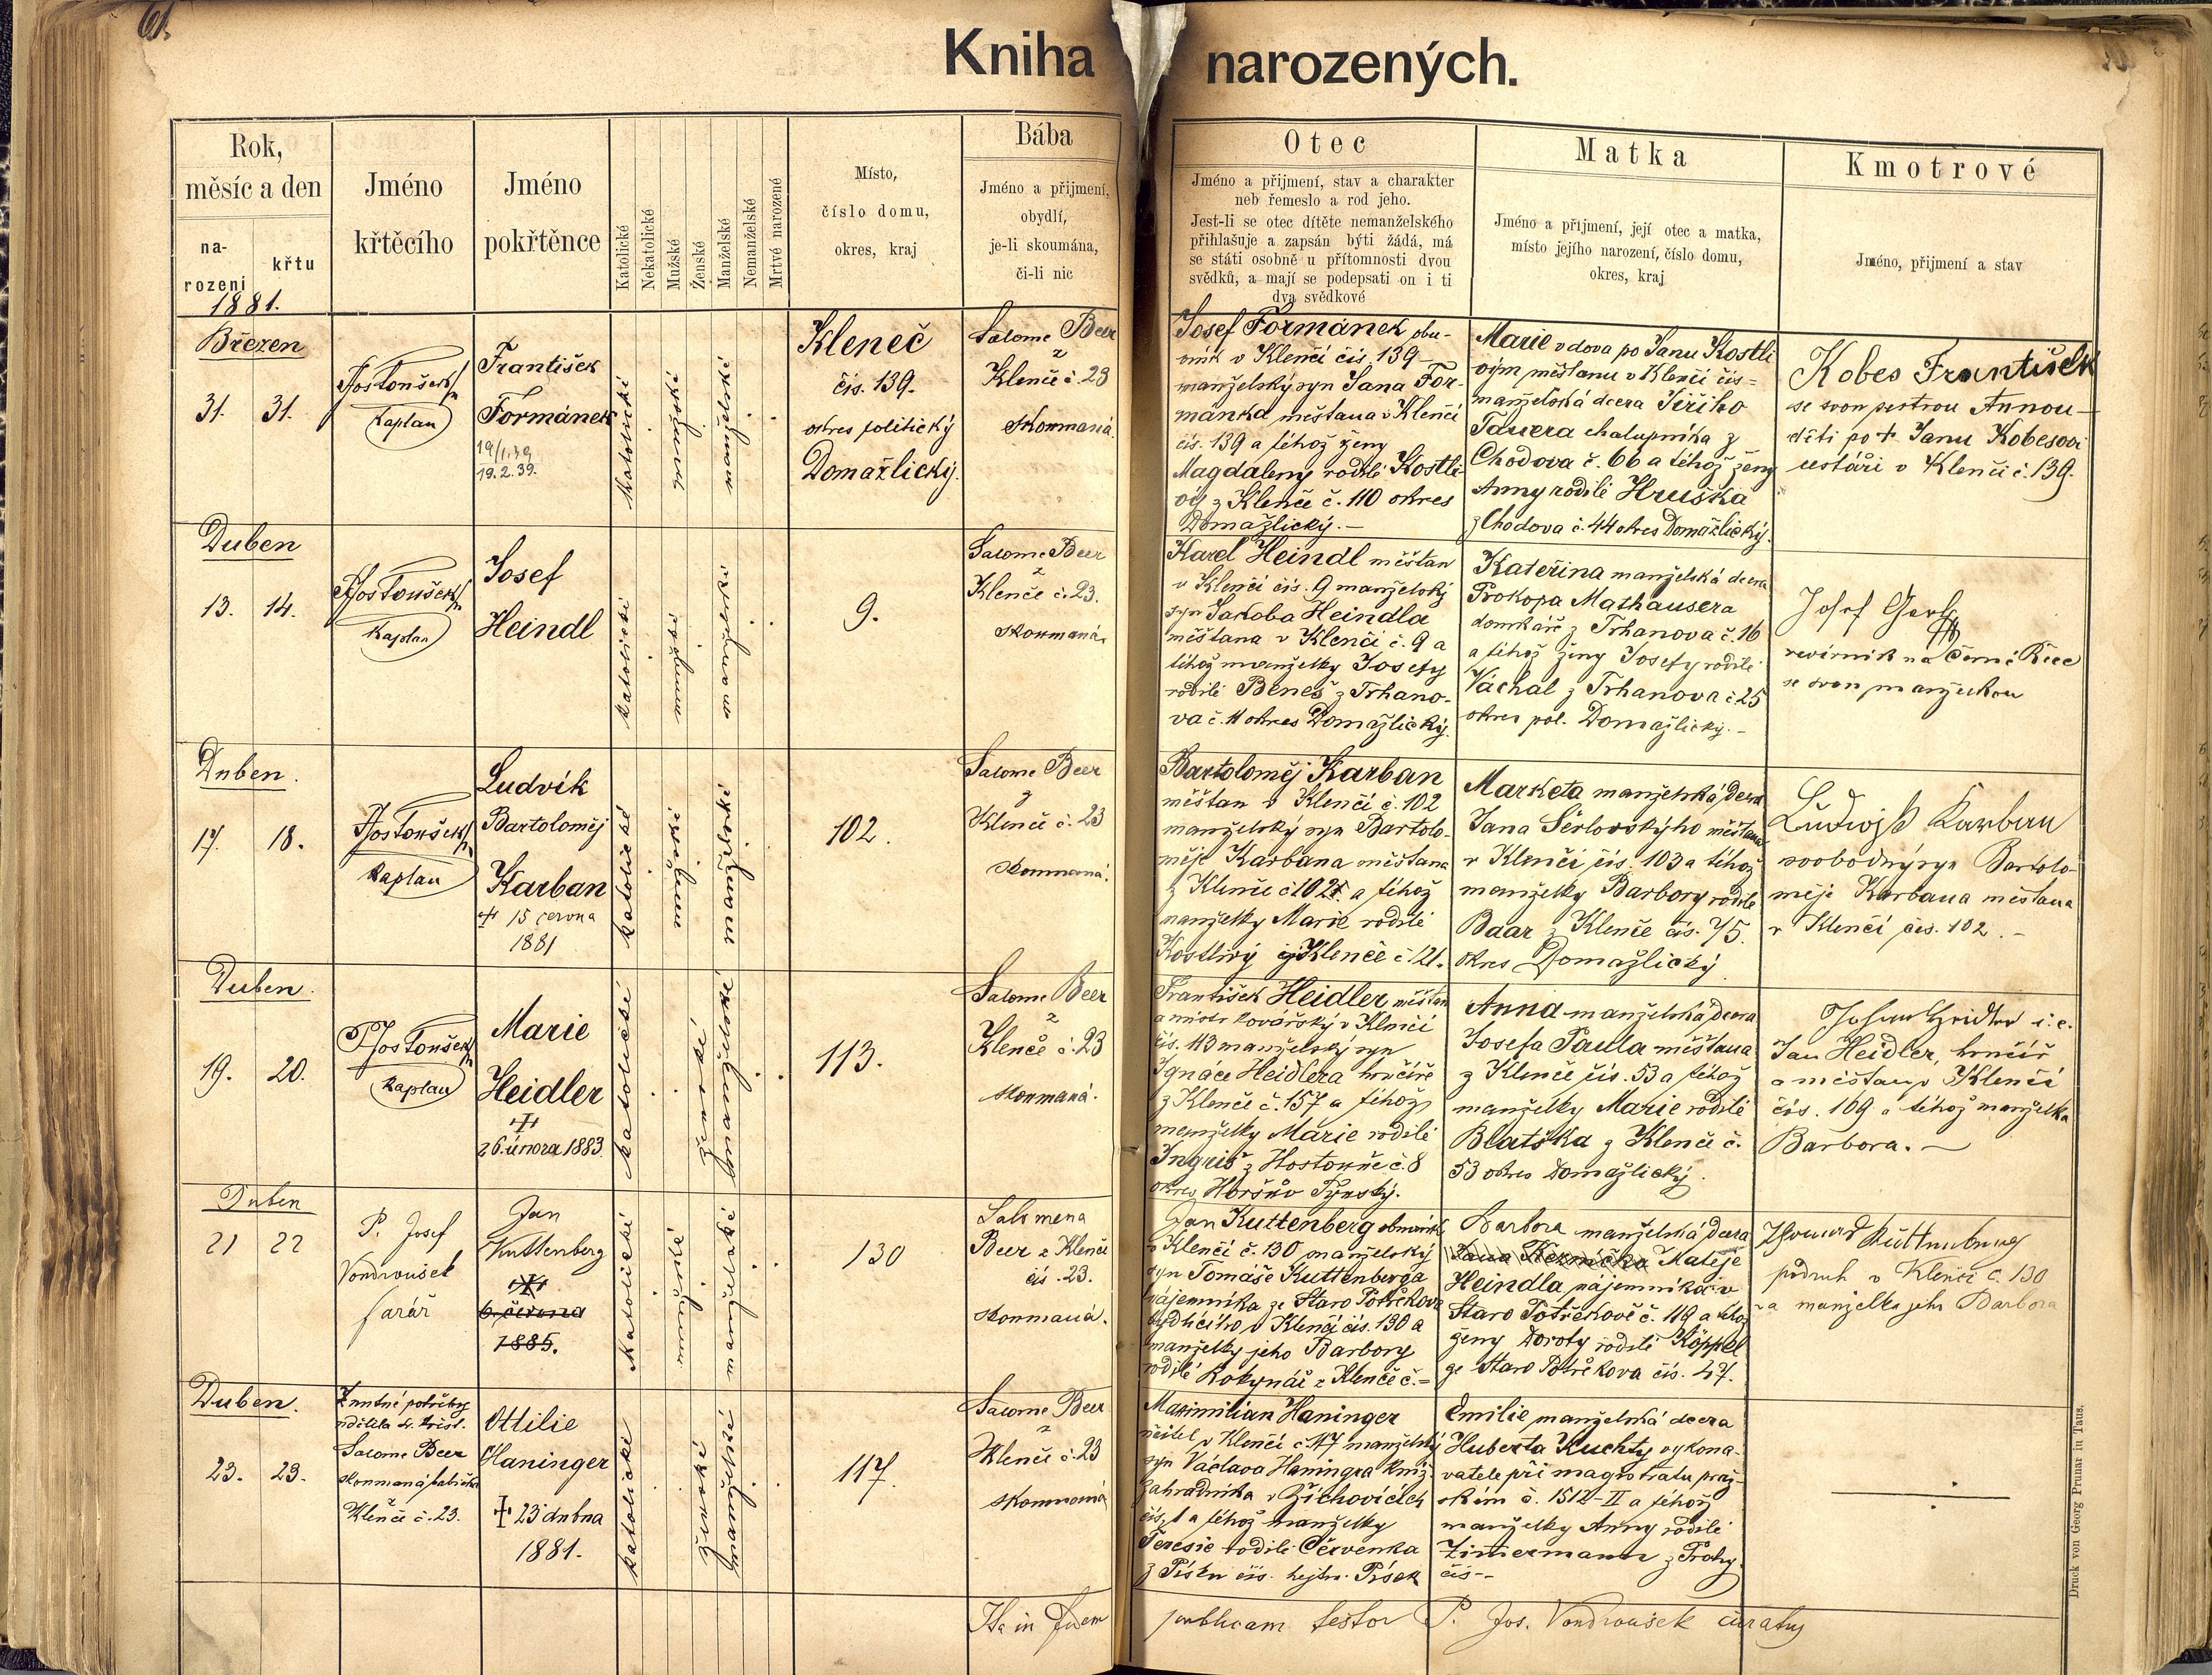 61.
Kniha narozených.
Rok,
měsíc a den
na-
rození
křtu
1881.
Jméno
křtěcího
Jméno
pokřtěnce
Katolické
Nekatolické
Mužské
Ženské
Manželské
Nemanželské
Mrtvé narozené
Místo,
číslo domu,
okres, kraj
Bába
Jméno a přijmení,
obydlí,
je-li skoumána,
či-li nic
Otec
Jméno a přijmení, stav a charakter
neb řemeslo a rod jeho.
Jest-li se otec dítěte nemanželského
přihlašuje a zapsán býti žádá, má
se státi osobně u přítomnosti dvou
svědků, a mají se podepsati on i ti
dva svědkové
Matka
Jméno a přijmení, její otec a matka,
místo jejího narození, číslo domu,
okres, kraj
Kmotrové
Jméno, přijmení a stav
Březen
31. 31.
Kaplan
František
Formánek
19/1.39
19.2.39.
katolické
mužské
manželské
Kleneč
čís. 139.
okres politický
Domažlický.
Salome Beer
z
Klenče č. 23
skoumaná
Josef Formánek obu-
vník v Klenči čís. 139
manželský syn Jana For-
mánka měšťana v Klenčí
čís. 139 a téhož ženy
Magdaleny rodilé Kostli-
vý z Klenče č. 110 okres
Domažlický.-
Marie vdova po Janu Kostli
vým měšťanu v Klenčí čís=
manželská dcera Jiřího
Tauera chalupníka z
Chodova č. 66 a téhož ženy
Anny rodilé Hruška
z Chodova č. 44 okres Domažlický.
Kobes František
se svou sestrou Annou-
děti po + Janu Kobesovi
cestáři v Klenčí č. 139.
Duben
13. 14.
Kaplan
Josef
Heindl
katolické
manželské
9.
Salome Beer
z
Klenče č. 23.
skoumaná.
Karel Heindl měšťan
v Klenčí čís. 9 manželský
syn Jakoba Heindla
měšťana v Klenčí č. 9 a
téhož manželky Josefy
rodilé Beneš z Trhano-
va č. 11 okres Domažlický.
Kateřina manželská dcera
Prokopa Mathausera
domkáře z Trhanova č. 16
a téhož ženy Josefy rodilé
Váchal z Trhanova č. 25
okres pol. Domažlický.-
Josef
revírník na Černé Řece
se svou manželkou
Duben.
17. 18.
Kaplan
Ludvík
Bartoloměj
Karban
+ 15 června
1881
katolické
manželské
102.
Salome Beer
z
Klenče č. 23
skoumaná.
Bartoloměj Karban
měšťan v Klenčí č. 102
manželský syn Bartolo-
měje Karbana měšťana
z Klenče č. 102 a téhož
manželky Marie rodilé
Kostlivý z Klenče č. 121.
Marketa manželská dcera
Jana Šerlovskýho měšťana
v Klenčí čís. 103 a téhož
manželky Barbory rodilé
Baar z Klenče čís. 75.
okres Domažlický
Ludwig Karban
svobodný syn Bartolo-
měje Karbana měšťana
v Klenčí čís. 102.-
Duben.
19. 20.
Kaplan
Marie
Heidler
+
26. února 1883.
katolické
ženské
manželské
113.
Salome Beer
z
Klenče č. 23
skoumaná.
František Heidler měšťan
a mistr kovářský v Klenčí
čís. 113 manželský syn
Ignace Heidlera hrnčíře
z Klenče č. 157 a téhož
manželky Marie rodilé
Ingriš z Hostouně č. 8
okres Horšův Týnský.
Anna manželská dcera
Josefa Paula měšťana
z Klenče čís. 53 a téhož
manželky Marie rodilé
Blatška z Klenče č.
53 okres Domažlický.
Johann Heidler i.e.
Jan Heidler, hrnčíř
a měšťan v Klenčí
čís. 169 a téhož manželka
Barbora.-
Duben
21 22
P. Josef
Vondroušek
farář
Jan
Kuttenberg
+
6. června
1885.
katolické
manželské
130
Salomena
Beer z Klenče
čís. 23.
skoumaná.
Jan Kuttenberg obuvník
v Klenčí č. 130 manželský
syn Tomáše Kuttenberga
nájemníka ze Staro Postřekova
bydlícího v Klenčí čís. 130 a
manželky jeho Barbory
rodilé Rokynář z Klenče č.=
Barbora manželská dcera
Matěje
Heindla nájemníka v
Staro Postřekově č. 119 a téhož
ženy Doroty rodilé Köppel
ze Staro Postřekova čís. 47.
Thomas Kuttenberg
podruh v Klenčí č. 130
a manželka jeho Barbora
Duben.
23. 23.
V nutné potřeby
udělila sv. křest.
Salome Beer
skoumaná babička
z
Klenče č. 23.
Ottilie
Haninger
+ 23 dubna
1881.
katolické
ženské
manželské
117.
Salome Beer
z
Klenče č. 23
skoumaná
Maximilian Haninger
učitel v Klenčí č. 117 manželský
syn Václava Haningra kníž.
zahradníka v Žichovicích
čís. 1 a téhož manželky
Teresie rodilé Červenka
z Písku čís. hejtm. Písek
Emilie manželská dcera
Huberta Kuchty vykona-
vatele při magistrátu praž-
ském č. 1512-II a téhož
manželky Anny rodilé
Zimmermann z Prahy
čís--
Ita in fidem publicam testor P. Jos. Vondroušek curatus
Druck von Georg Prunar in Taus.